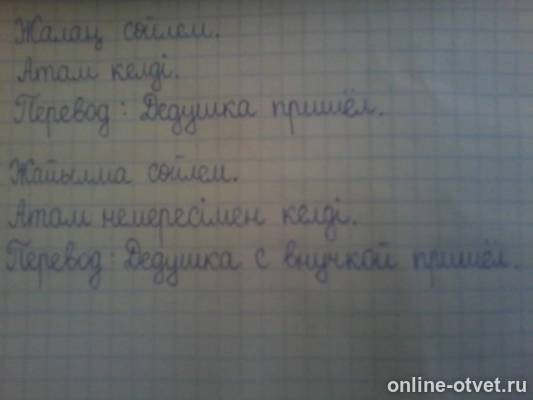 Жалаң сөйлем.
Атам келді.
Перевод: Дедушка пришёл.
Жайылма сөйлем.
Атам немересімен келді.
Перевод: Дедушка с внучкой пришёл.
online-otvet.ru